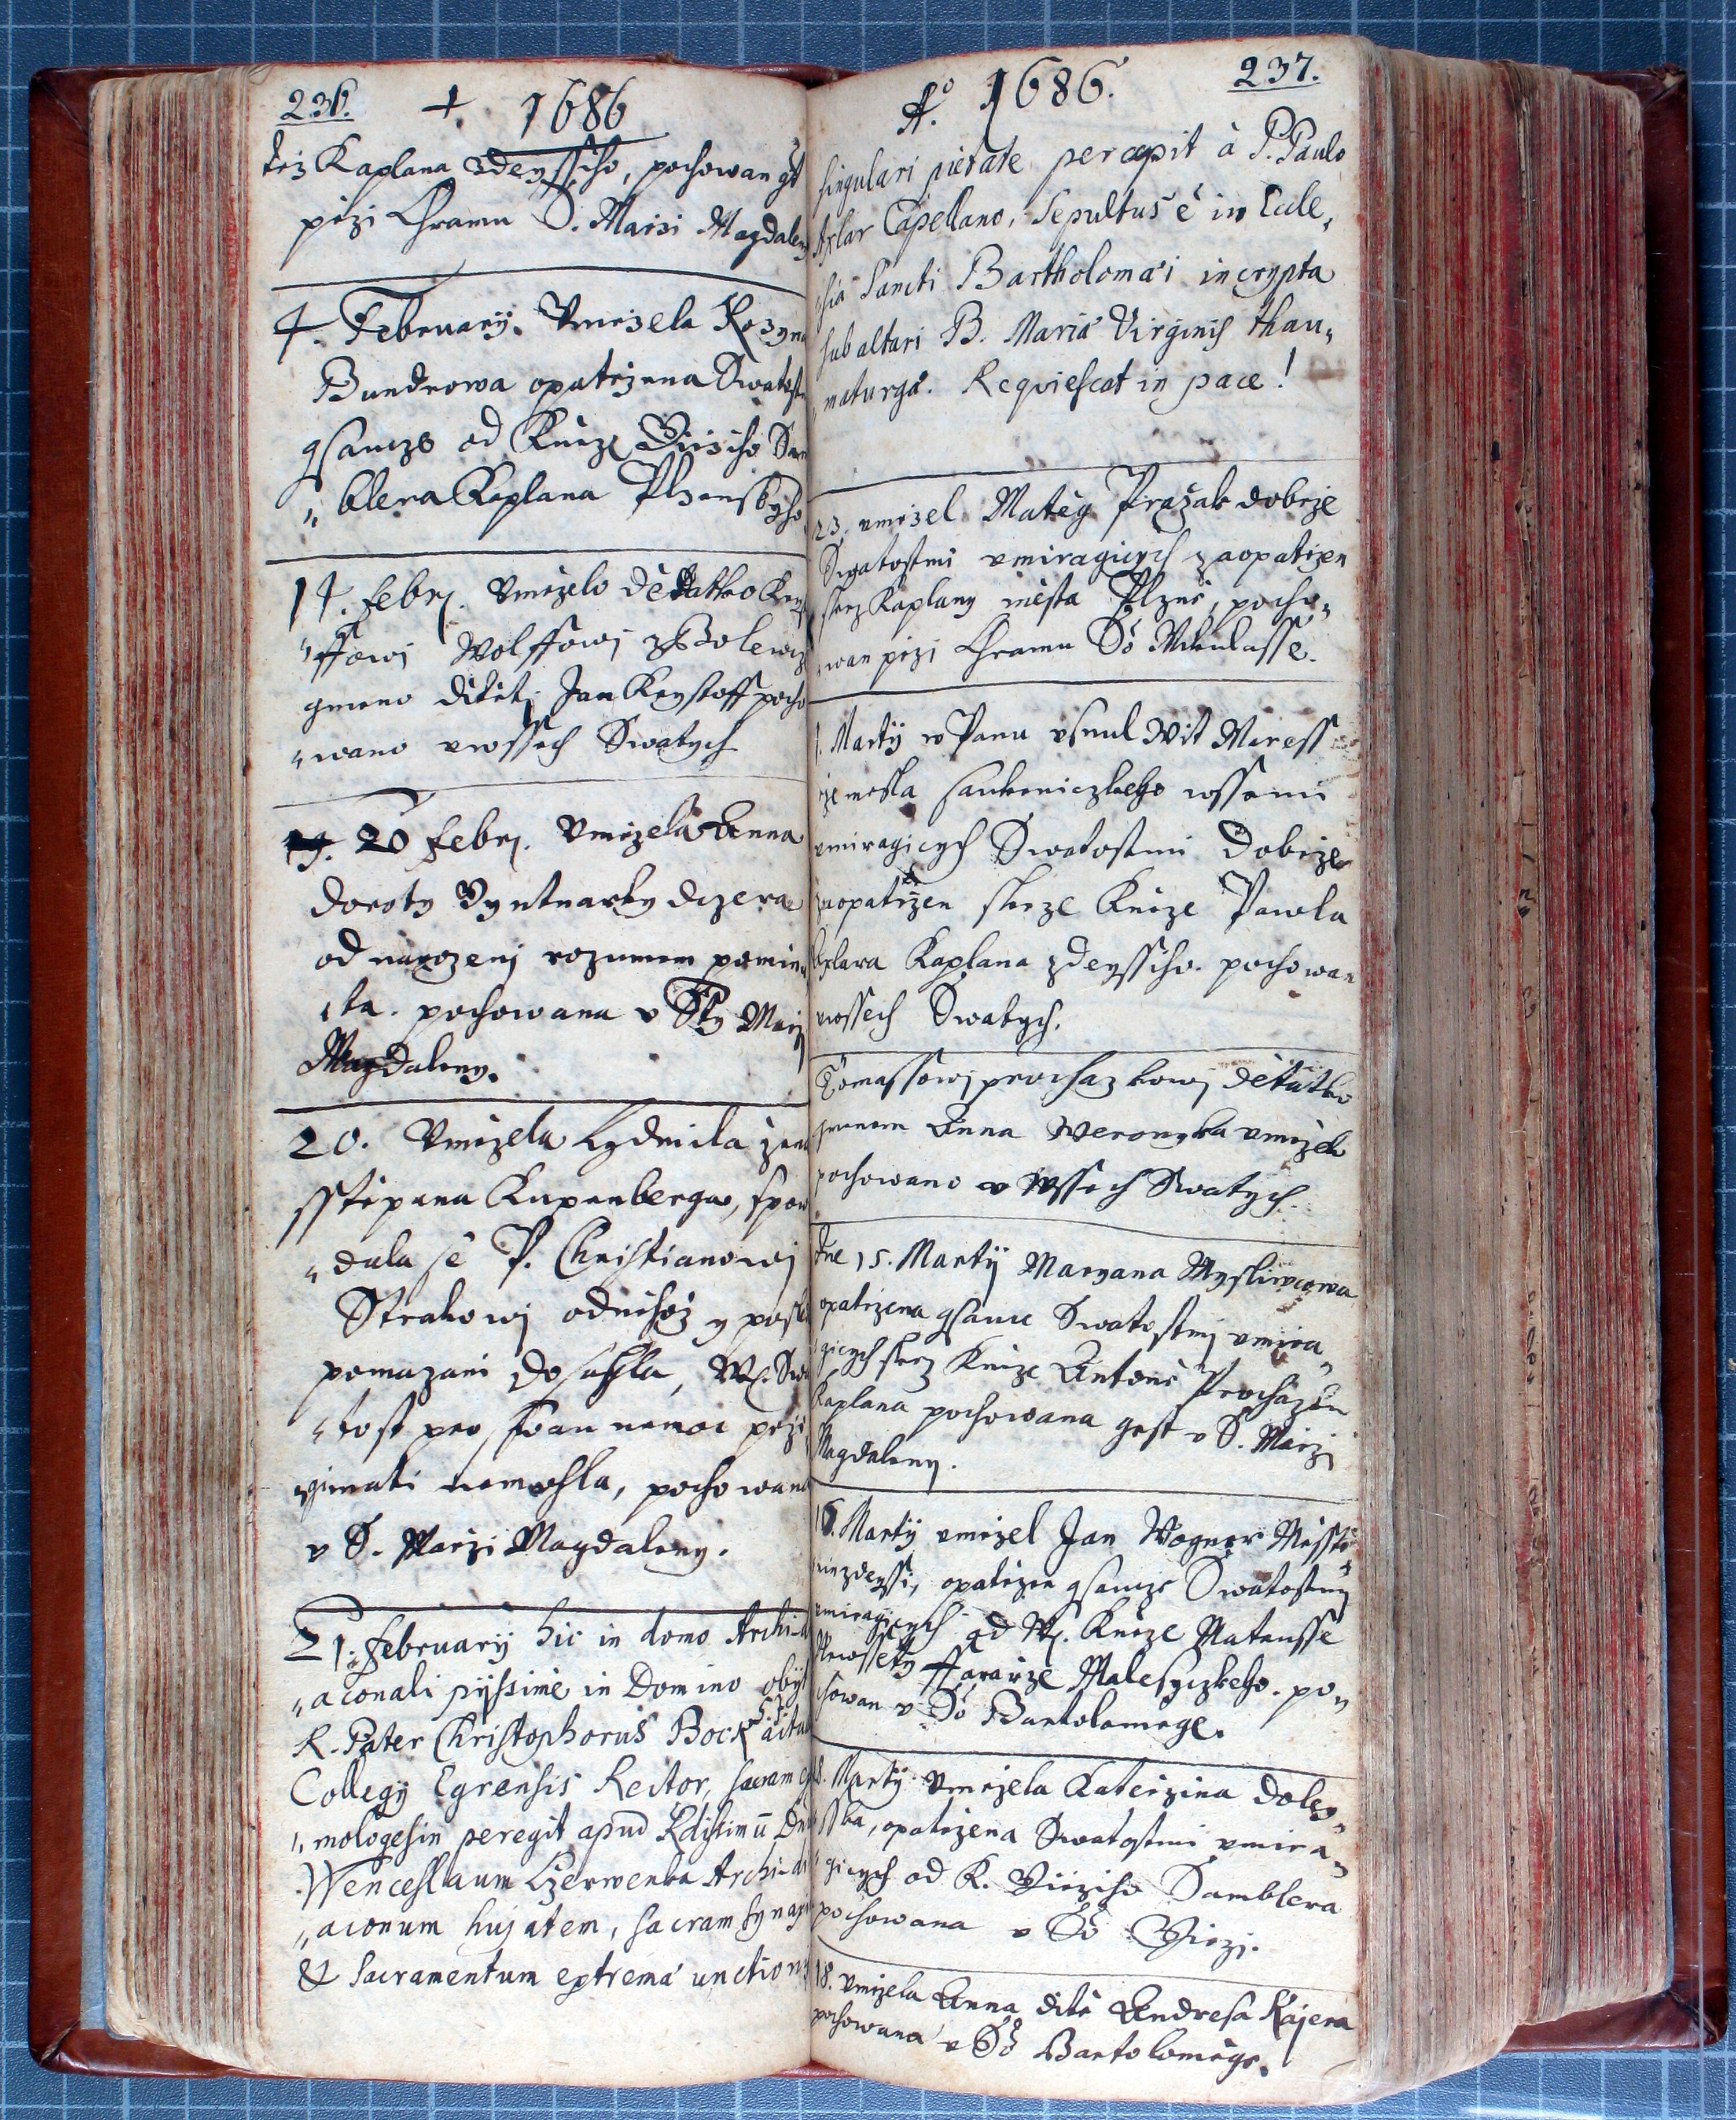 236. + 1686
krz Kaplana zdeyssiho, pochowan gt
przi Chramu S. Marzi Magdaleny
4. February. Vmrzela Rozyna
Bundrowa opatrzena Swatost
gsaucze od Knize Girziho Sam
„blera Kaplana Plzenskyho
14. febr. Vmrzelo děťatko Kry
„ffowi Wolffowi z Bolewcz
gmeno ditěti Jan Krystoff pocho
„wano v wssech Swatych
20 febr. Vmrzela Anna
Doroty Vyntnarky dczera
od narozeni rozumem pomin
„ta. pochowana v Sty Marj
Magdaleny.
20. Vmrzela Lydmila zena
Sstěpana Kupenberga, spow
„dala se P. Christianowi
Strakowi odnihoz y posl
pomazani dosahla, W. Swa
„tost pro swau nemoc przi
„gimati nemohla, pochowana
v S. Marzi Magdaleny.
21. february hic in domo Archi-di
„aconali pijssimè in Domino obijt
R. Pater Christophorus Bock S.J. actu
Collegij Egrensis Rector, sacram ex
„mologesin peregit apud Rdissimū Dn
Wenceslaum Czerwenka Archi-di
„aconum hujatem, sacram synaxi
& Sacramentum extremæ unctionis
Aº 1686. 237.
singulari pietate percepit à P. Paulo
Axlar Capellano, Sepultus ê in Eccle„
sia Sancti Bartholomæi in crypta
sub altari B. Mariæ Virginis thau„
maturgæ. Requiescat in pace!
23. vmrzel Matěg Pražak dobrze
Swatostmi vmiragicych zaopatrzen
skrz Kaplany města Plzně, pocho„
wan przi Chramu Sº Mikulasse.
Martij w Panu vsnul Wit Maress
rzemesla saukeniczkeho wssemi
vmiragicych Swatostmi dobrze
zaopatrzen skrze Knize Pawla
Axlara Kaplana zdeyssiho. pochowan
v wssech Swatych.
Tomassowi prochazkowi děťatko
gmenem Anna Weronyka vmrzelo
pochowano v Wssech Swatych.
Dne 15. Martij Maryana Mysliwcowa
opatrzena gsauc Swatostmi vmira„
gicych skrz Knize Antonè Prochazku
Kaplana pochowana gest v S. Marzi
Magdaleny.
16. Martij vmrzel Jan Wogner Misstě
nin zdeyssi, opatrzen gsaucze Swatostmi
vmiragicych od W. Knize Matausse
ffararze Malesyczkeho. po„
chowan v Sº Bartolomege.
18. Martij Vmrzela Katerzina doleg„
sska, opatrzena Swatostmi vmira„
gicych od K. Girziho Samblera
pochowana v Sº Girzi.
18. vmrzela Anna ditě Andresa Rajera
pochowana v Sº Bartolomège.